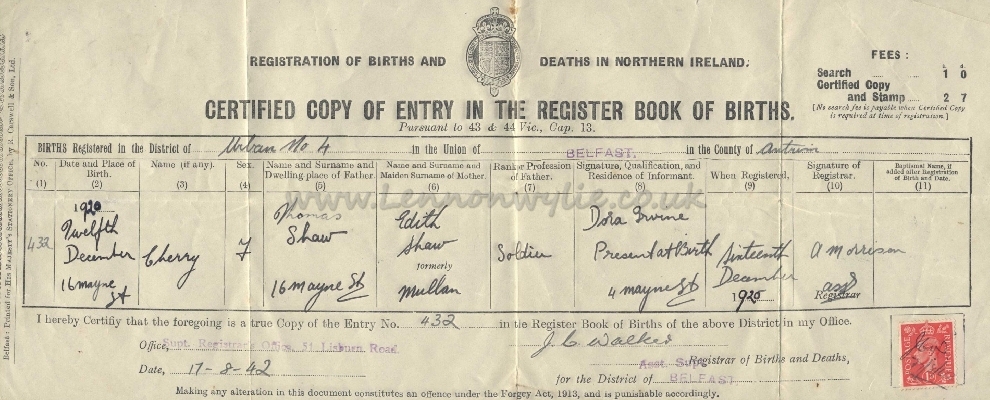 REGISTRATION OF BIRTHS AND DEATHS IN NORTHERN IRELAND.
FEES :
s. d.
Search ... 1 0
Certified Copy
and Stamp ... 2 7
[No search fee is payable when Certified Copy
is required at time of registration.]
CERTIFIED COPY OF ENTRY IN THE REGISTER BOOK OF BIRTHS.
Pursuant to 43 & 44 Vic., Cap. 13.
BIRTHS Registered in the District of Urban No 4 in the Union of BELFAST. in the County of Antrim
No. (1)
Date and Place of Birth. (2)
Name (if any). (3)
Sex. (4)
Name and Surname and Dwelling place of Father. (5)
Name and Surname and Maiden Surname of Mother. (6)
Rank or Profession of Father. (7)
Signature, Qualification, and Residence of Informant. (8)
When Registered. (9)
Signature of Registrar. (10)
Baptismal Name, if added after Registration of Birth and Date. (11)
www.Lennonwylie.co.uk
432
1920 Twelfth December 16 mayne St
Cherry
F
Thomas Shaw 16 mayne St
Edith Shaw formerly Mullan
Soldier
Dora Irvine Present at Birth 4 mayne St
Sixteenth December 1920
A Morrison asst Registrar
I hereby Certify that the foregoing is a true Copy of the Entry No. 432 in the Register Book of Births of the above District in my Office.
Office, Supt. Registrar's Office, 51 Lisburn Road.
J. C. Walker
Asst. Supt. Registrar of Births and Deaths,
Date, 17-8-42
for the District of BELFAST
Making any alteration in this document constitutes an offence under the Forgery Act, 1913, and is punishable accordingly.
Belfast: Printed for His Majesty's Stationery Office, by R. Carswell & Son, Ltd.
POSTAGE
REVENUE